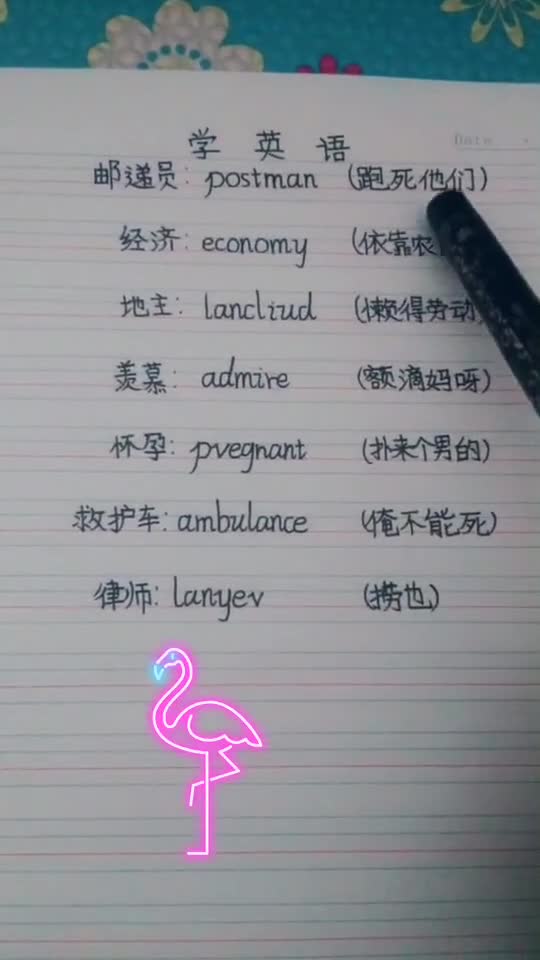 Date
学英语
邮递员: postman (跑死他们)
经济: economy (依靠农
地主: lancliud (懒得劳动)
羡慕: admire (额滴妈呀)
怀孕: pvegnant (扑来个男的)
救护车: ambulance (俺不能死)
律师: lanyev (捞也)